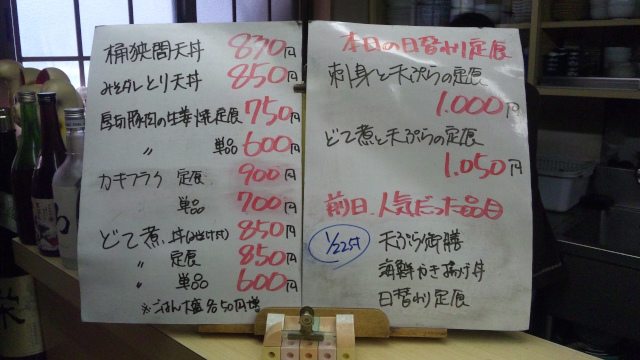 桶狭間天丼 830円
みそだれとり天丼 850円
厚切豚肉の生姜焼定食 750円
〃 単品 600円
カキフライ 定食 900円
単品 700円
どて煮 丼(みそ汁付) 850円
〃 定食 850円
〃 単品 600円
※ごはん大盛各50円増
本日の日替わり定食
刺身と天ぷらの定食
1,000円
どて煮と天ぷらの定食
1,050円
前日、人気だった品目
1/22付 天ぷら御膳
海鮮かき揚げ丼
日替わり定食